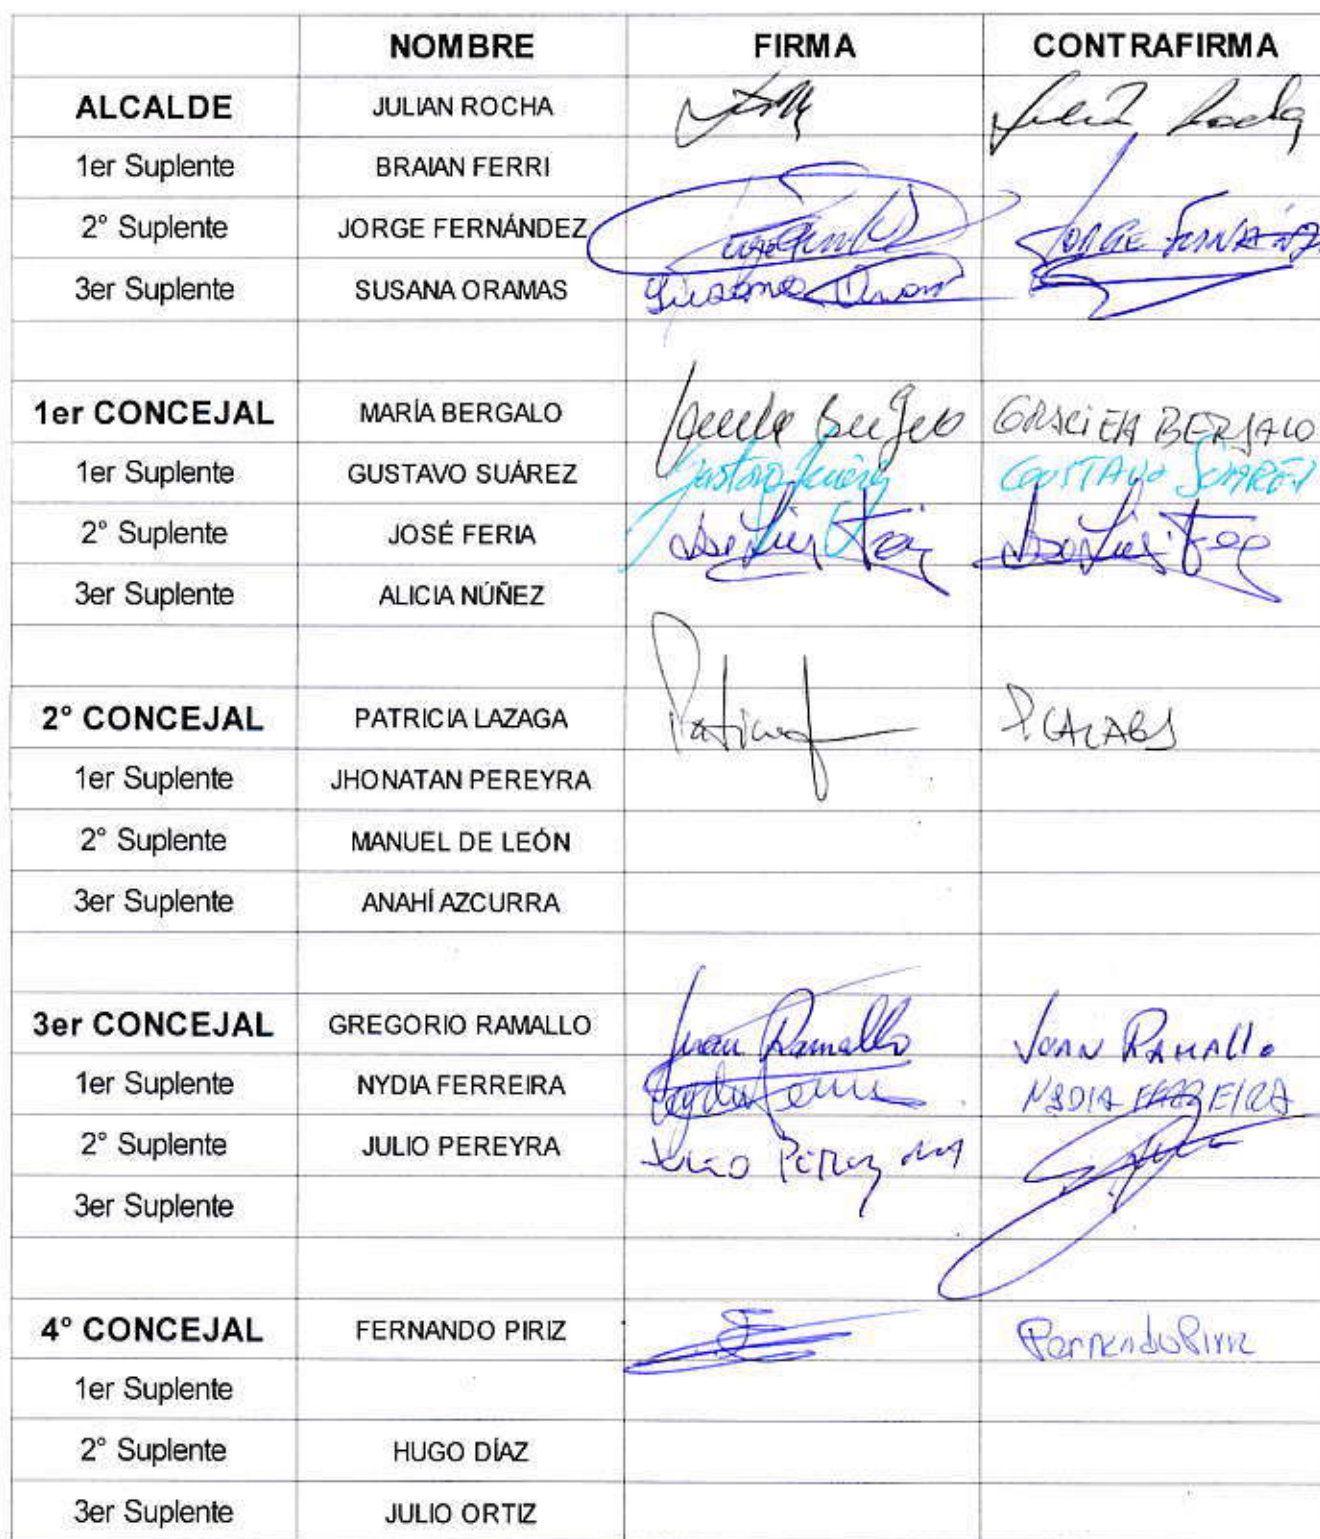 NOMBRE FIRMA CONTRAFIRMA
ALCALDE JULIAN ROCHA Julián Rocha
1er Suplente BRAIAN FERRI
2° Suplente JORGE FERNÁNDEZ JORGE
3er Suplente SUSANA ORAMAS Susana
1er CONCEJAL MARÍA BERGALO GRACIELA BERGALO
1er Suplente GUSTAVO SUÁREZ Gustavo Suárez GUSTAVO SUAREZ
2° Suplente JOSÉ FERIA
3er Suplente ALICIA NÚÑEZ
2° CONCEJAL PATRICIA LAZAGA
1er Suplente JHONATAN PEREYRA
2° Suplente MANUEL DE LEÓN
3er Suplente ANAHÍ AZCURRA
3er CONCEJAL GREGORIO RAMALLO Juan Ramallo JUAN RAMALLO
1er Suplente NYDIA FERREIRA NYDIA FERREIRA
2° Suplente JULIO PEREYRA
3er Suplente
4° CONCEJAL FERNANDO PIRIZ Fernando Piriz
1er Suplente
2° Suplente HUGO DÍAZ
3er Suplente JULIO ORTIZ